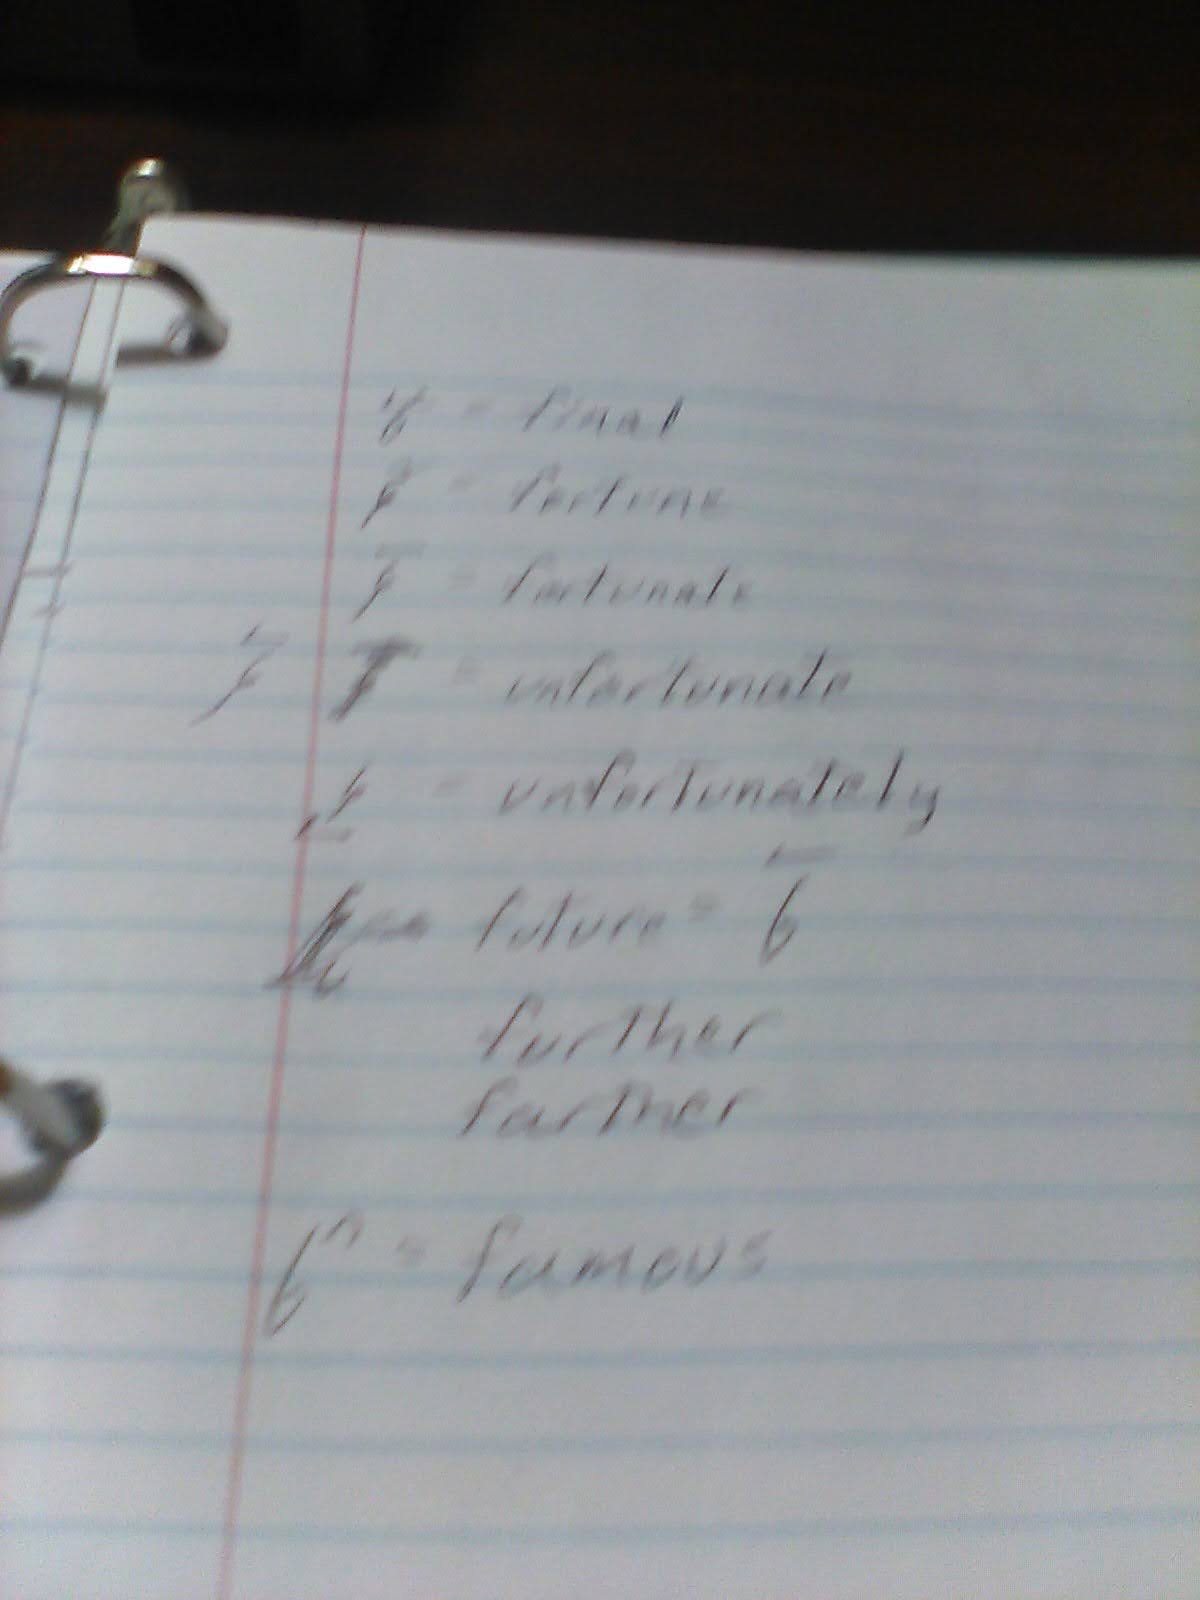 = final
= fortune
= fortunate
= unfortunate
= unfortunately
future =
further
farther
= famous